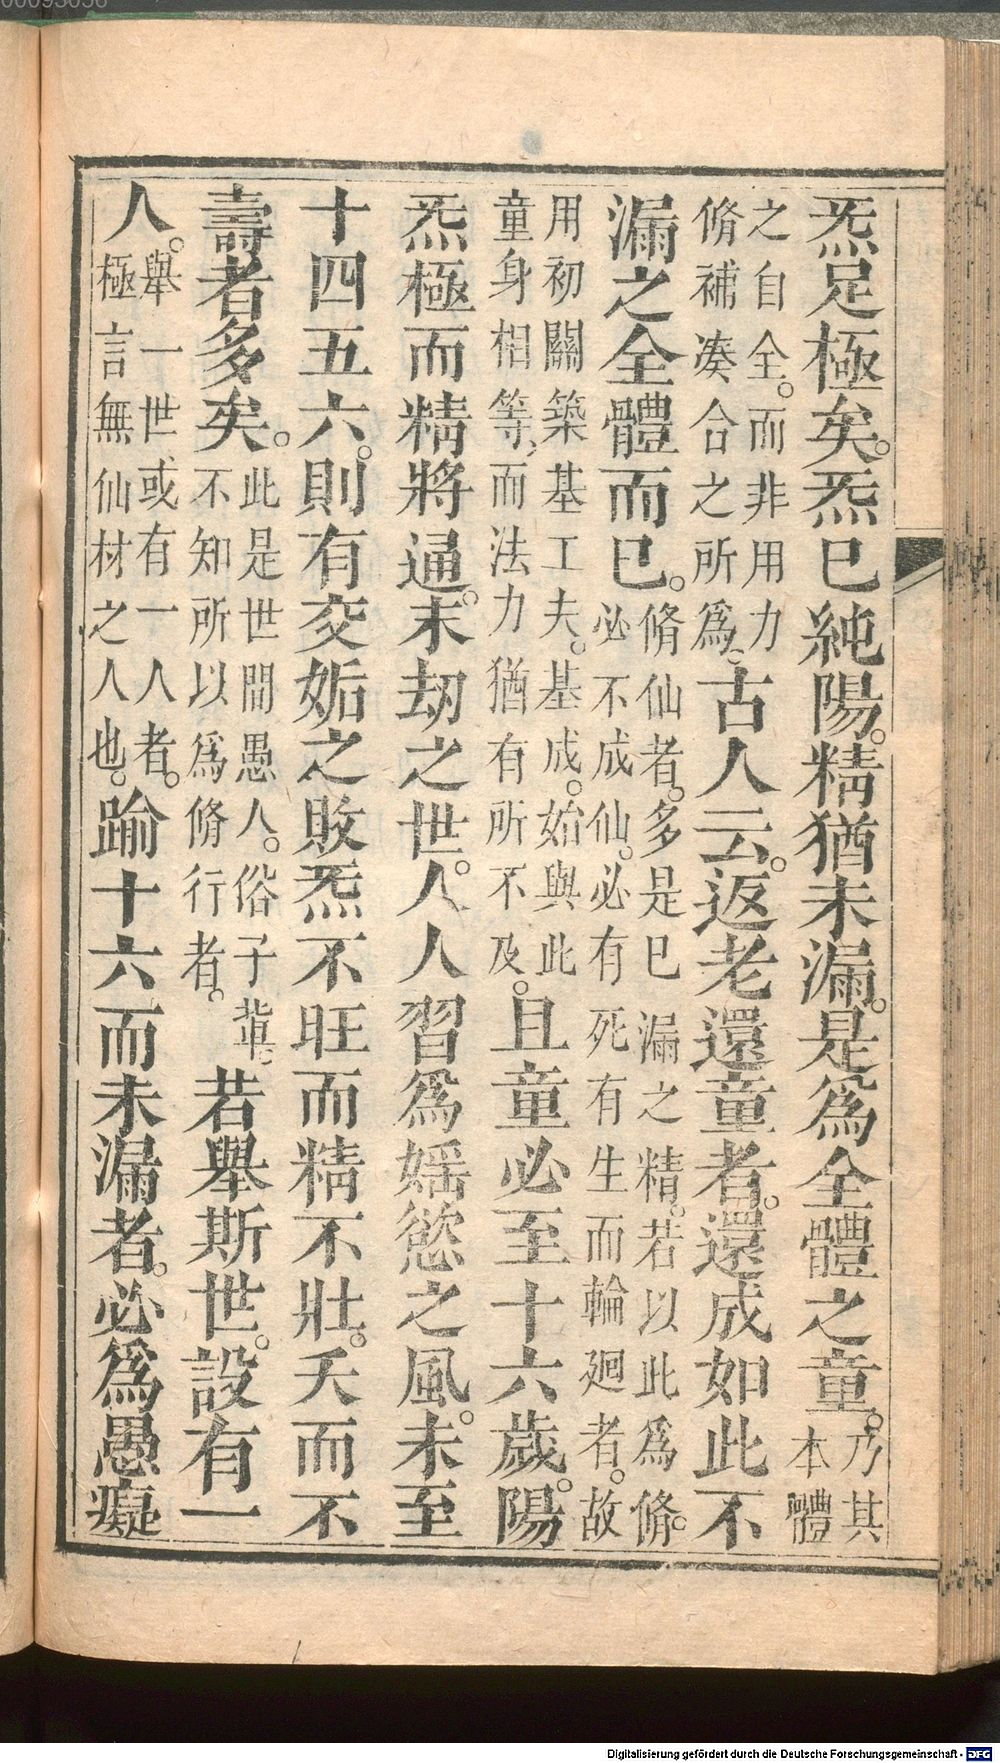 炁足極矣。炁已純陽。精猶未漏。是爲全體之童。乃其
本體
之自全。而非用力
脩補湊合之所爲。古人云。返老還童者。還成如此不
漏之全體而已。脩仙者。多是已漏之精。若以此爲脩。
必不成仙。必有死有生而輪廻者。故
用初關築基工夫。基成。始與此
童身相等、而法力猶有所不及。且童必至十六歲。陽
炁極而精將通。末劫之世。人人習爲婬慾之風。未至
十四五六。則有交姤之敗炁不旺而精不壯。夭而不
壽者多矣。此是世間愚人。俗子輩。
不知所以爲脩行者。若舉斯世。設有一
人。舉一世、或有一人者。
極言無仙材之人也。踰十六而未漏者。必爲愚癡
Digitalisierung gefördert durch die Deutsche Forschungsgemeinschaft - DFG